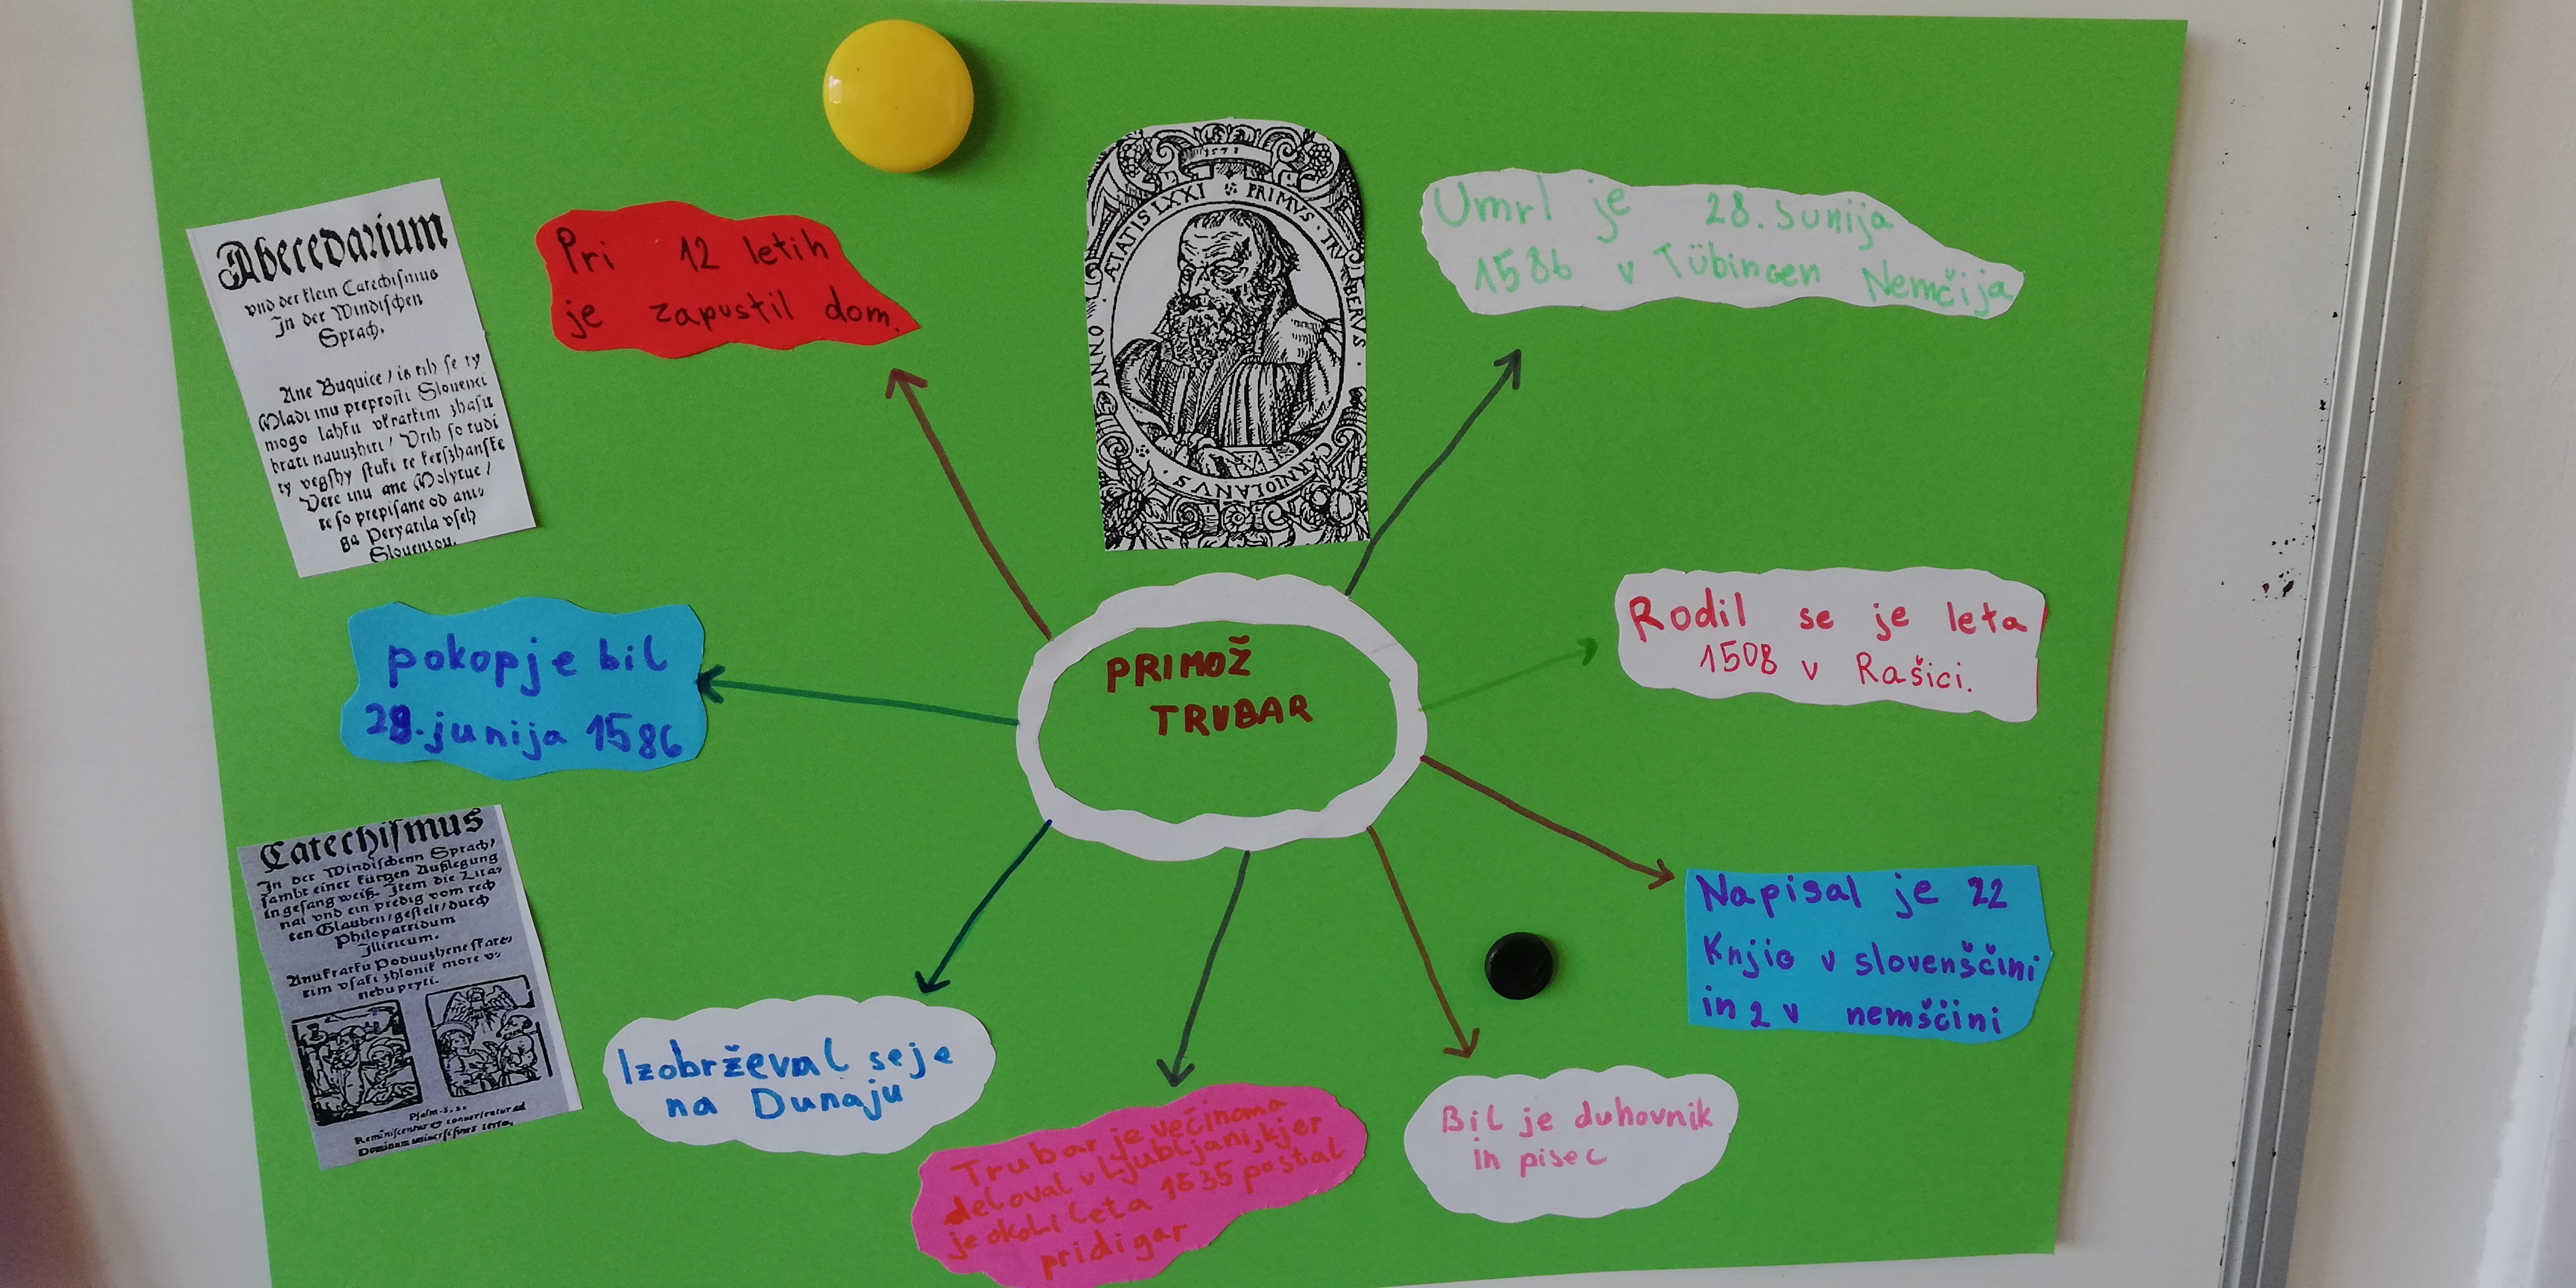 Abecedarium
vnd der klein Catechismus
In der Windischen
Sprach.
Ane Buquice / is tih se ty
Mladi inu preprosti Slouenci
mogo lahku vkratkim zhasu
brati nauuzhiti / Vtih so tudi
ty vegshy stuki te kerszhanske
Vere inu ane Molytue /
te so prepisane od aniga
Peryatila vseh
Slouenzou.
Pri 12 letih
je zapustil dom.
1571
ANNO ÆTATIS LXXI PRIMVS TRVBERVS CARNIOLANVS
Umrl je 28. Junija
1586 v Tübingen Nemčija
pokopje bil
29. junija 1586
PRIMOŽ
TRUBAR
Rodil se je leta
1508 v Rašici.
Catechismus
In der Windischenn Sprach,
sambt einer kürtzen Außlegung
in gesang weiß. Item die Litanai
vnd ein predig vom rechten
Glauben / gestelt / durch
Philopatridum
Illiricum.
Anu kratku Poduuzhene skaterim
vsaki zhlouik more vnebu
pryti.
Psalm
Dominum
Napisal je 22
Knjig v slovenščini
in 2 v nemščini
Izobrževal seje
na Dunaju
Trubar je večinoma
deloval v Ljubljani, kjer
je okoli leta 1535 postal
pridigar
Bil je duhovnik
in pisec